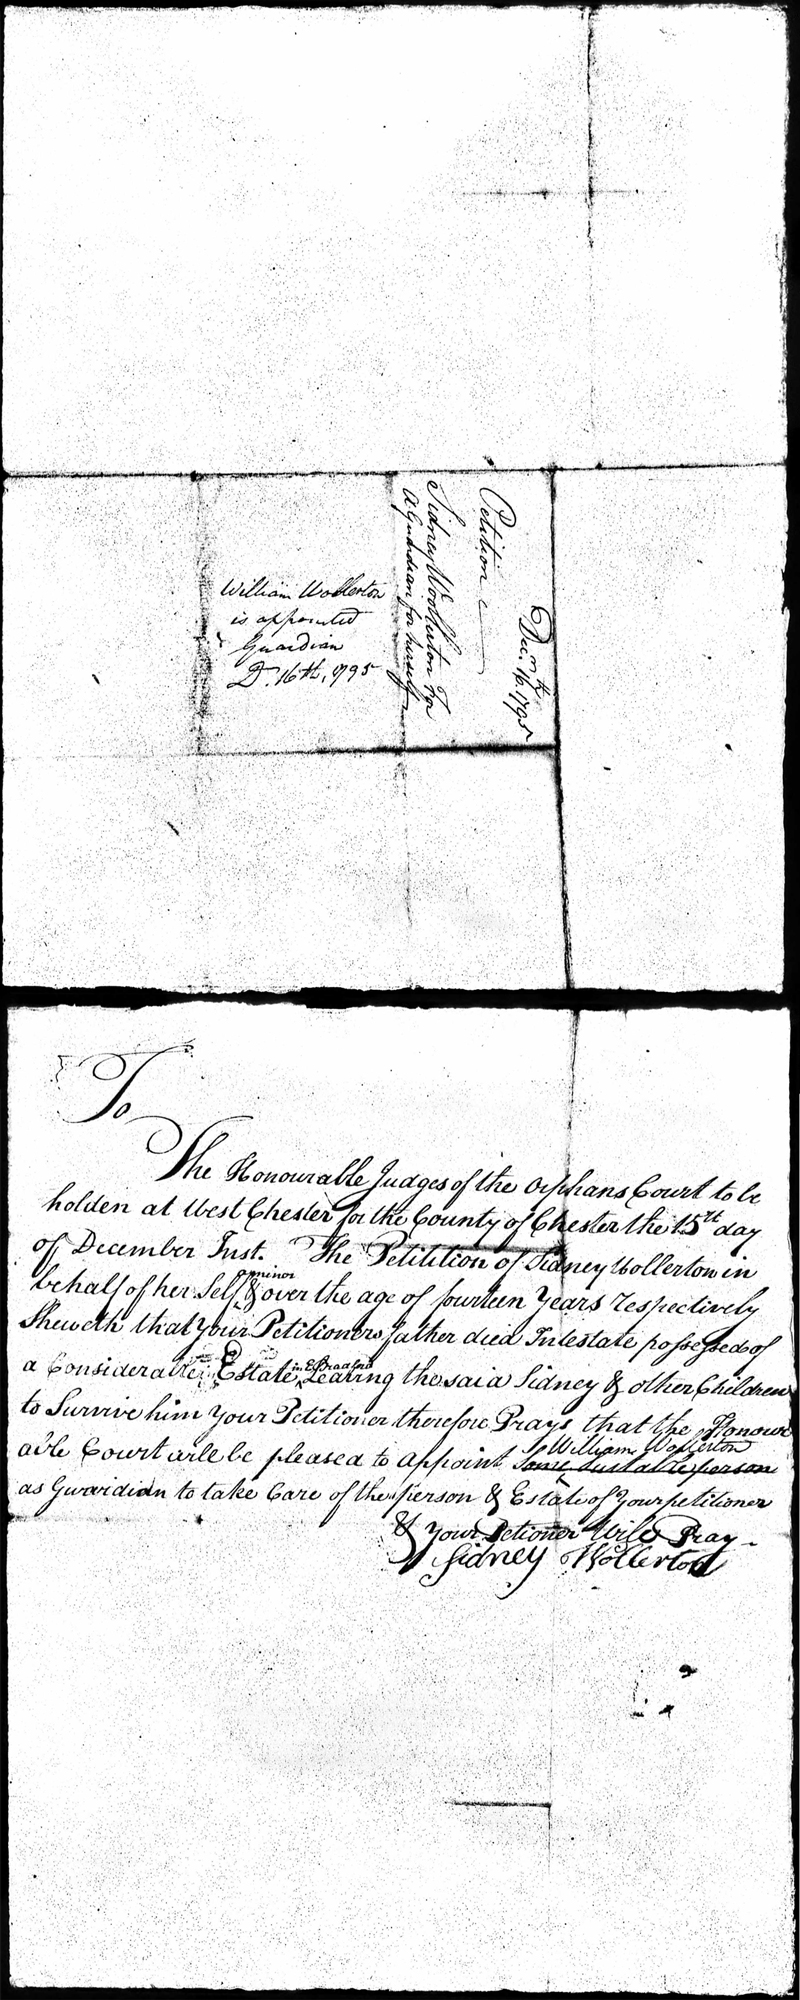 William Wollerton
is appointed
Guardian
D. 16th, 1795
Petition
Sidney Woollerton For
A Guardian for herself
Decr. 16, 1795
To
The Honourable Judges of the Orphans Court to be
holden at West Chester for the County of Chester the 15th day
of December Inst. The Petitition of Sidney Wollerton in
a minor
behalf of her Self & over the age of fourteen Years respectively
Sheweth that Your Petitioners father died Intestate possessed of
a Considerable Estate Leaving the said Sidney & other Children
to Survive him Your Petitioner therefore Prays that the Honour
William Wollerton
able Court will be pleased to appoint Some Suitable person
as Gwardian to take Care of the person & Estate of Your petitioner
& Your Petioner Will Pray
Sidney Wollerton